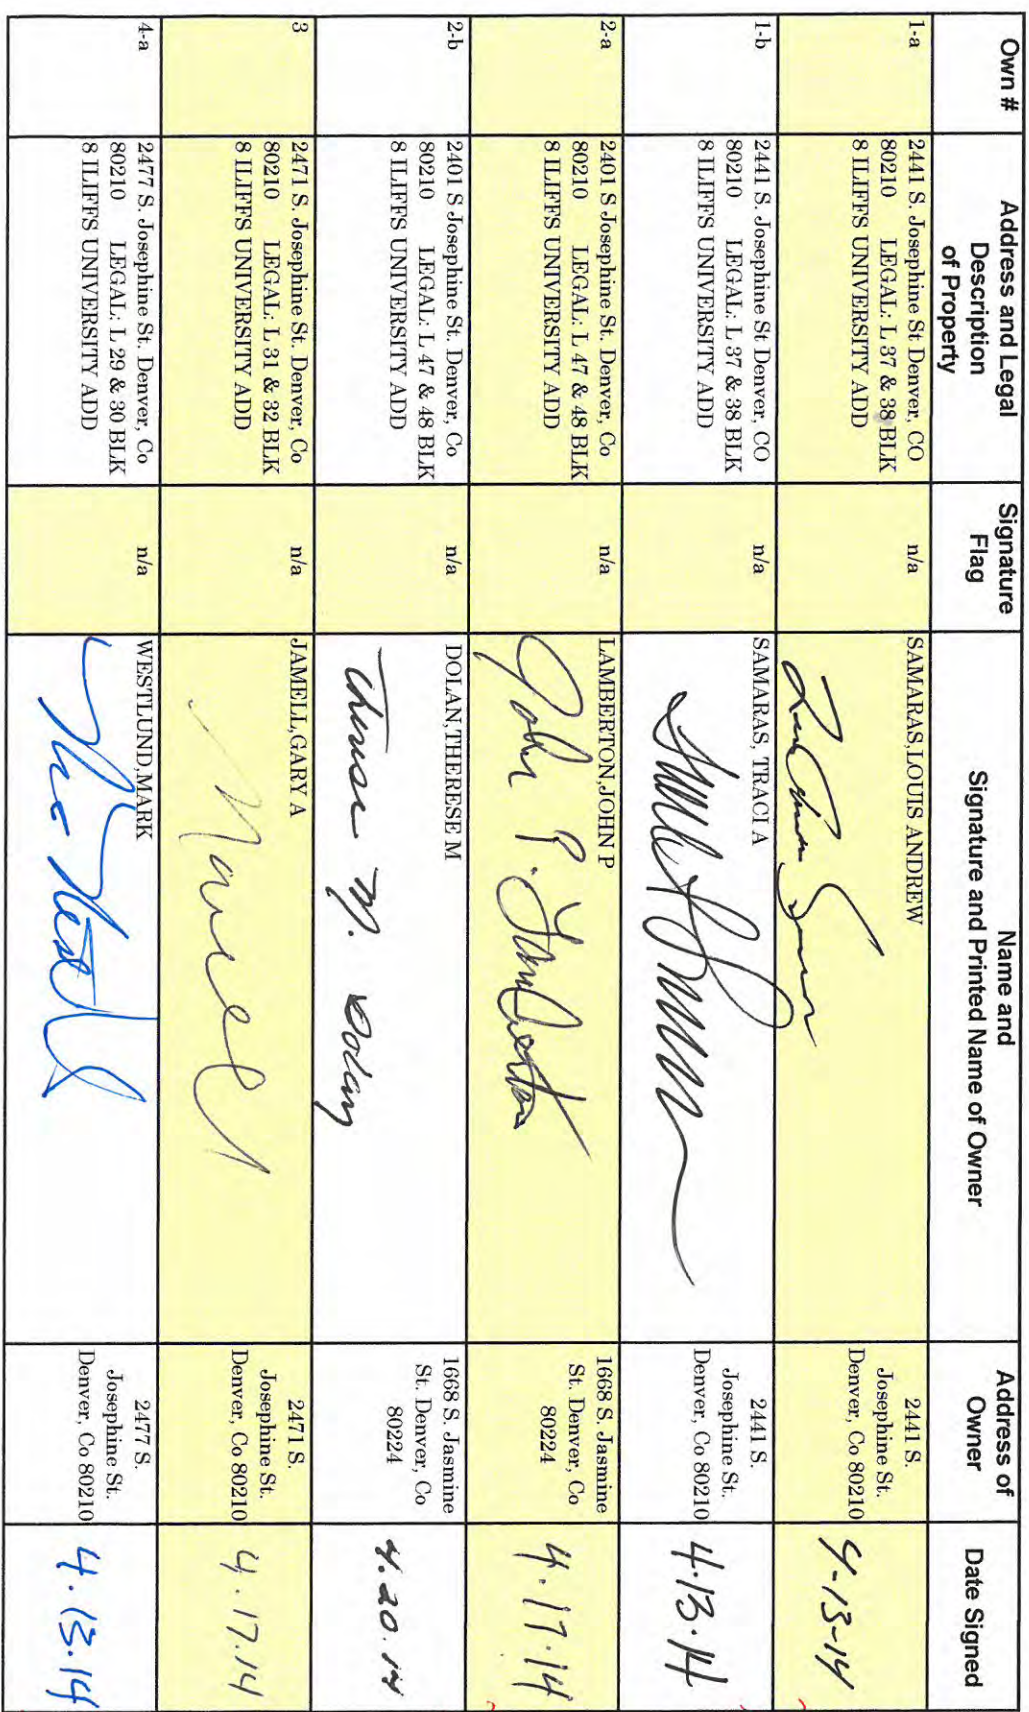 Own #
Address and Legal
Description
of Property
Signature
Flag
Name and
Signature and Printed Name of Owner
Address of
Owner
Date Signed
1-a
2441 S. Josephine St Denver, CO
80210 LEGAL: L 37 & 38 BLK
8 ILIFFS UNIVERSITY ADD
n/a
SAMARAS,LOUIS ANDREW
2441 S.
Josephine St.
Denver, Co 80210
4-13-14
1-b
2441 S. Josephine St Denver, CO
80210 LEGAL: L 37 & 38 BLK
8 ILIFFS UNIVERSITY ADD
n/a
SAMARAS, TRACI A
2441 S.
Josephine St.
Denver, Co 80210
4.13.14
2-a
2401 S Josephine St. Denver, Co
80210 LEGAL: L 47 & 48 BLK
8 ILIFFS UNIVERSITY ADD
n/a
LAMBERTON,JOHN P
John P. Lamberton
1668 S. Jasmine
St. Denver, Co
80224
4.17.14
2-b
2401 S Josephine St. Denver, Co
80210 LEGAL: L 47 & 48 BLK
8 ILIFFS UNIVERSITY ADD
n/a
DOLAN,THERESE M
Therese M. Dolan
1668 S. Jasmine
St. Denver, Co
80224
4.20.14
3
2471 S. Josephine St. Denver, Co
80210 LEGAL: L 31 & 32 BLK
8 ILIFFS UNIVERSITY ADD
n/a
JAMELL,GARY A
2471 S.
Josephine St.
Denver, Co 80210
4.17.14
4-a
2477 S. Josephine St. Denver, Co
80210 LEGAL: L 29 & 30 BLK
8 ILIFFS UNIVERSITY ADD
n/a
WESTLUND,MARK
2477 S.
Josephine St.
Denver, Co 80210
4.13.14